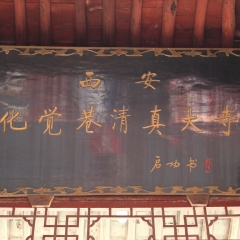 西安
化觉巷清真大寺
启功书